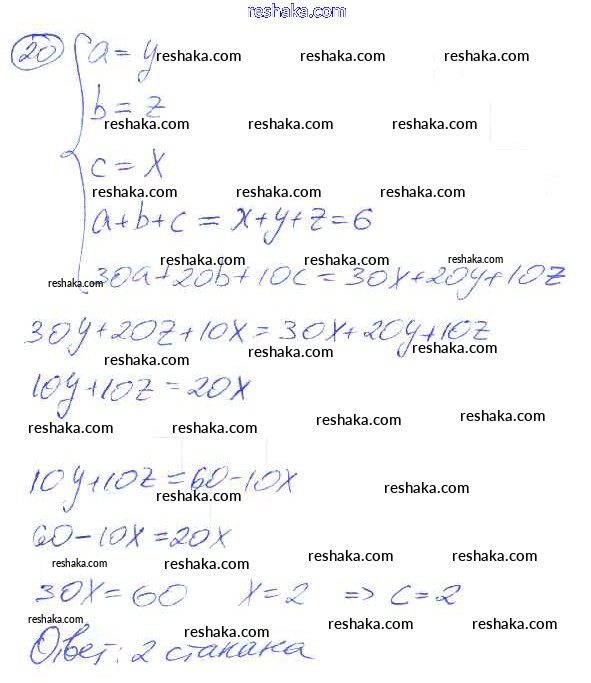 reshaka.com
20 a = y
reshaka.com reshaka.com reshaka.com
b = z
reshaka.com reshaka.com reshaka.com
c = x
reshaka.com reshaka.com reshaka.com
a+b+c = x+y+z=6
reshaka.com reshaka.com reshaka.com
30a+20b+10c=30x+20y+10z
reshaka.com
30y+20z+10x=30x+20y+10z
reshaka.com reshaka.com reshaka.com
10y+10z=20x
reshaka.com reshaka.com reshaka.com
10y+10z=60-10x
reshaka.com reshaka.com
60-10x=20x
reshaka.com reshaka.com reshaka.com
30x=60 x=2 => c=2
reshaka.com reshaka.com reshaka.com
Ответ: 2 стакана
reshaka.com reshaka.com